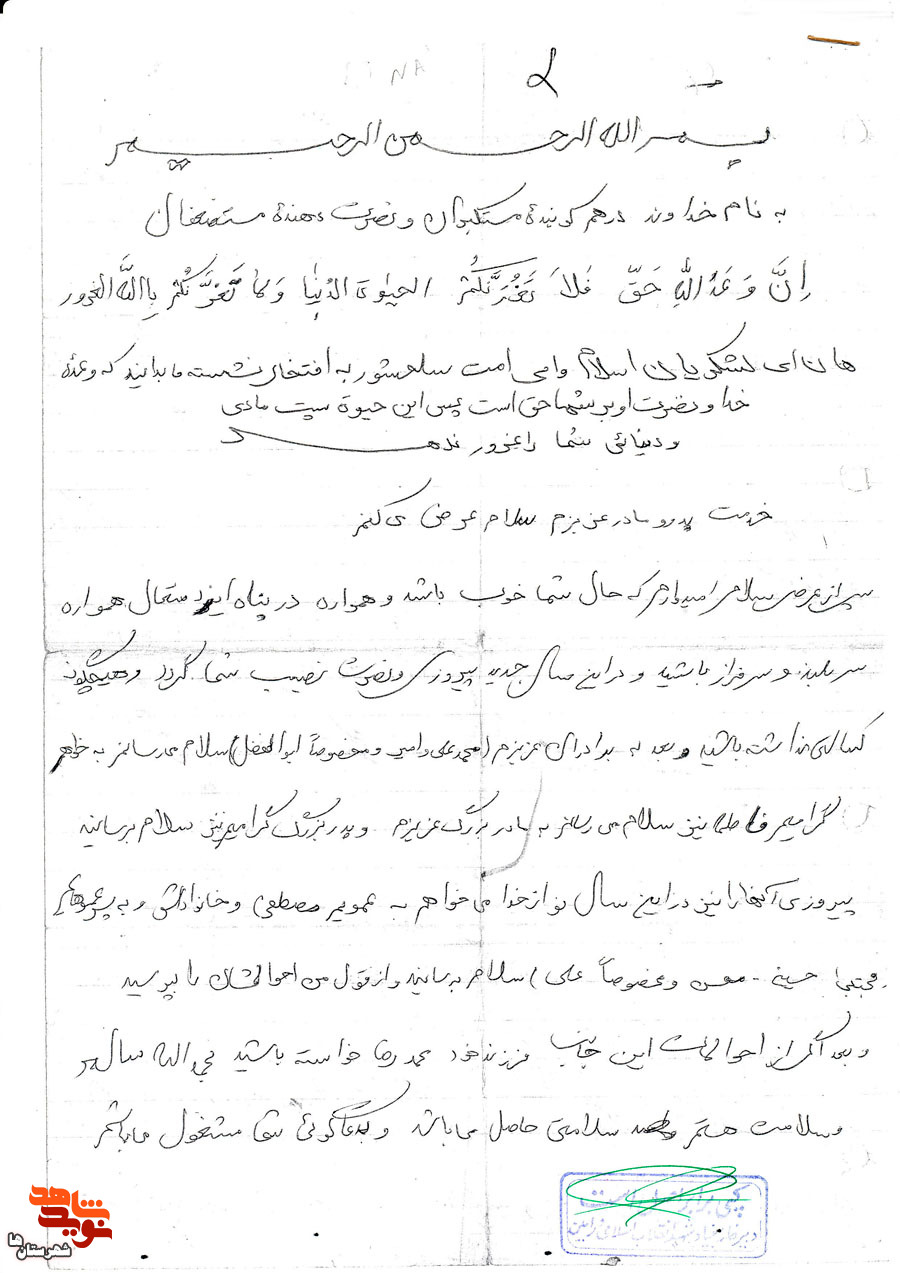 بسم الله الرحمن الرحیم
به نام خداوند درهم کوبندهٔ مستکبران و نصرت دهندهٔ مستضعفان
اِنَّ وَعدُ اللهِ حَقّ فَلاَ تَغُرَّنَّکُمُ الحیاوة الدُنیٰا وَلا تَغُرَّنَّکُم بِااللهِ الغرور
هان ای لشکریان اسلام وامی امت سلحشور به افتخار نشسته ما بدانید که وعدهٔ
خدا و نصرت او بر شما حق است پس این حیوة پست مادی
و دنیائی شما را غرور ندهد
خدمت پدر و مادر عزیزم سلام عرض می کنم
پس از عرض سلام امیدوارم که حال شما خوب باشد و همواره در پناه ایزد متعال همواره
سربلند و سرفراز باشید و در این سال جدید پیروزی و نصرت نصیب شما گردد و هیچگونه
کسالتی نداشته باشید و بعد به برادران عزیزم (محمد علی و امیر و مخصوصاً ابوالفضل) سلام می رسانم به خواهر
گرامیم فاطمه نیز سلام می رسانم به مادر بزرگ عزیزم و پدر بزرگ گرامیم نیز سلام برسانید
پیروزی آنها را نیز در این سال نو از خدا می خواهم به عمویم مصطفی و خانواده اش و به پسر عموهایم
(مجتبی حسین - محسن و مخصوصاً علی) سلام برسانید و از قول من احوالشان را بپرسید
و بعد اگر از احوالات این جانب فرزند خود محمد رضا خواسته باشید بحمدالله سالم
و سلامت هستم سلامتی حاصل می باشد و بدعاگوئی شما مشغول می باشم
کپی برابر اصل است
نوید شاهد
شهرستان ها